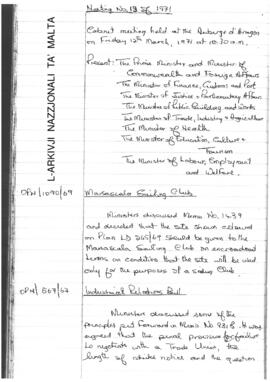 Meeting No. 13 of 1971
Cabinet meeting held at the Auberge d'Aragon
on Friday 12th March, 1971 at 10.30 a.m.
Present: The Prime Minister and Minister of
Commonwealth and Foreign Affairs
The Minister of Finance, Customs and Port
The Minister of Justice & Parliamentary Affairs
The Minister of Public Building and Works
The Minister of Trade, Industry & Agriculture
The Minister of Health
The Minister of Education, Culture &
Tourism
The Minister of Labour, Employment
and Welfare.
L-ARKIVJI NAZZJONALI TA' MALTA
OPM/1090/69
Marsascala Sailing Club
Ministers discussed Memo No. 1439
and decided that the site shown coloured
on Plan LD 265/69 should be given to the
Marsascala Sailing Club on
terms on condition that the site will be used
only for the purposes of a sailing Club.
OPM/867/67
Industrial Relations Bill
Ministers discussed some of the
principles put forward in Memo No. It was
agreed that the penal provisions for failure
to negotiate with a Trade Union, the
length of strike notice and the question